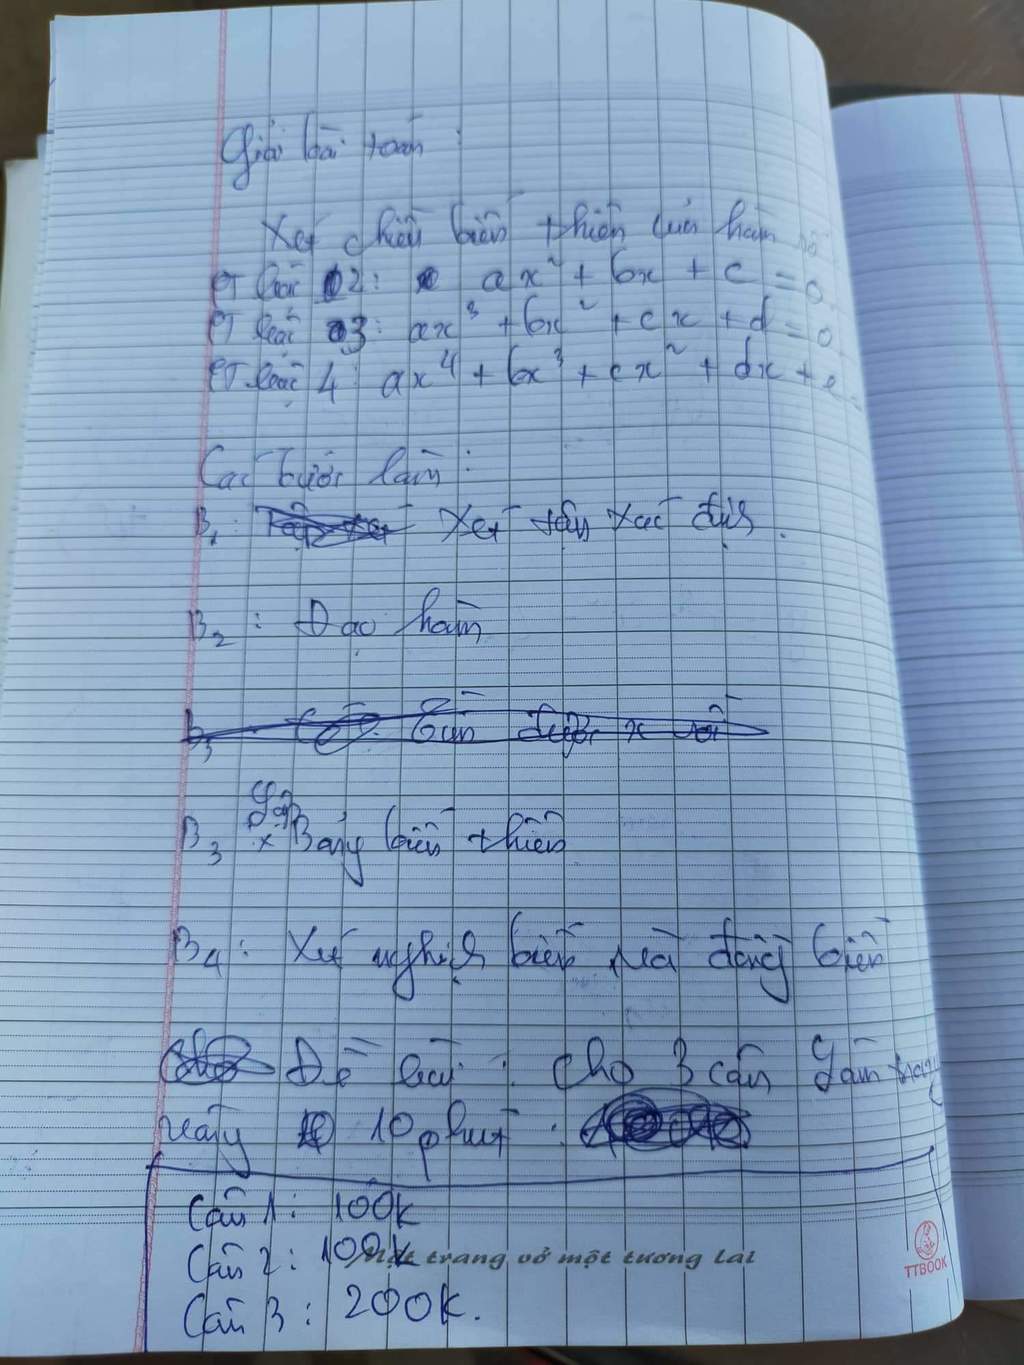 Giải bài toán :
Xét chiều biến thiên của hàm số
PT bậc 2 : ax² + bx + c = 0
PT bậc 3 : ax³ + bx² + cx + d = 0
PT bậc 4 : ax⁴ + bx³ + cx² + dx + e =
Các bước làm :
B₁ : Xét tập xác định.
B₂ : Đạo hàm
B₃ Lập Bảng biến thiên
B₄ : Xét nghịch biến và đồng biến
Đề bài : cho 3 câu làm trong
vòng 10 phút :
Câu 1 : 100K
Câu 2 : 100K
Một trang vở một tương lai
TTBOOK
Câu 3 : 200K.